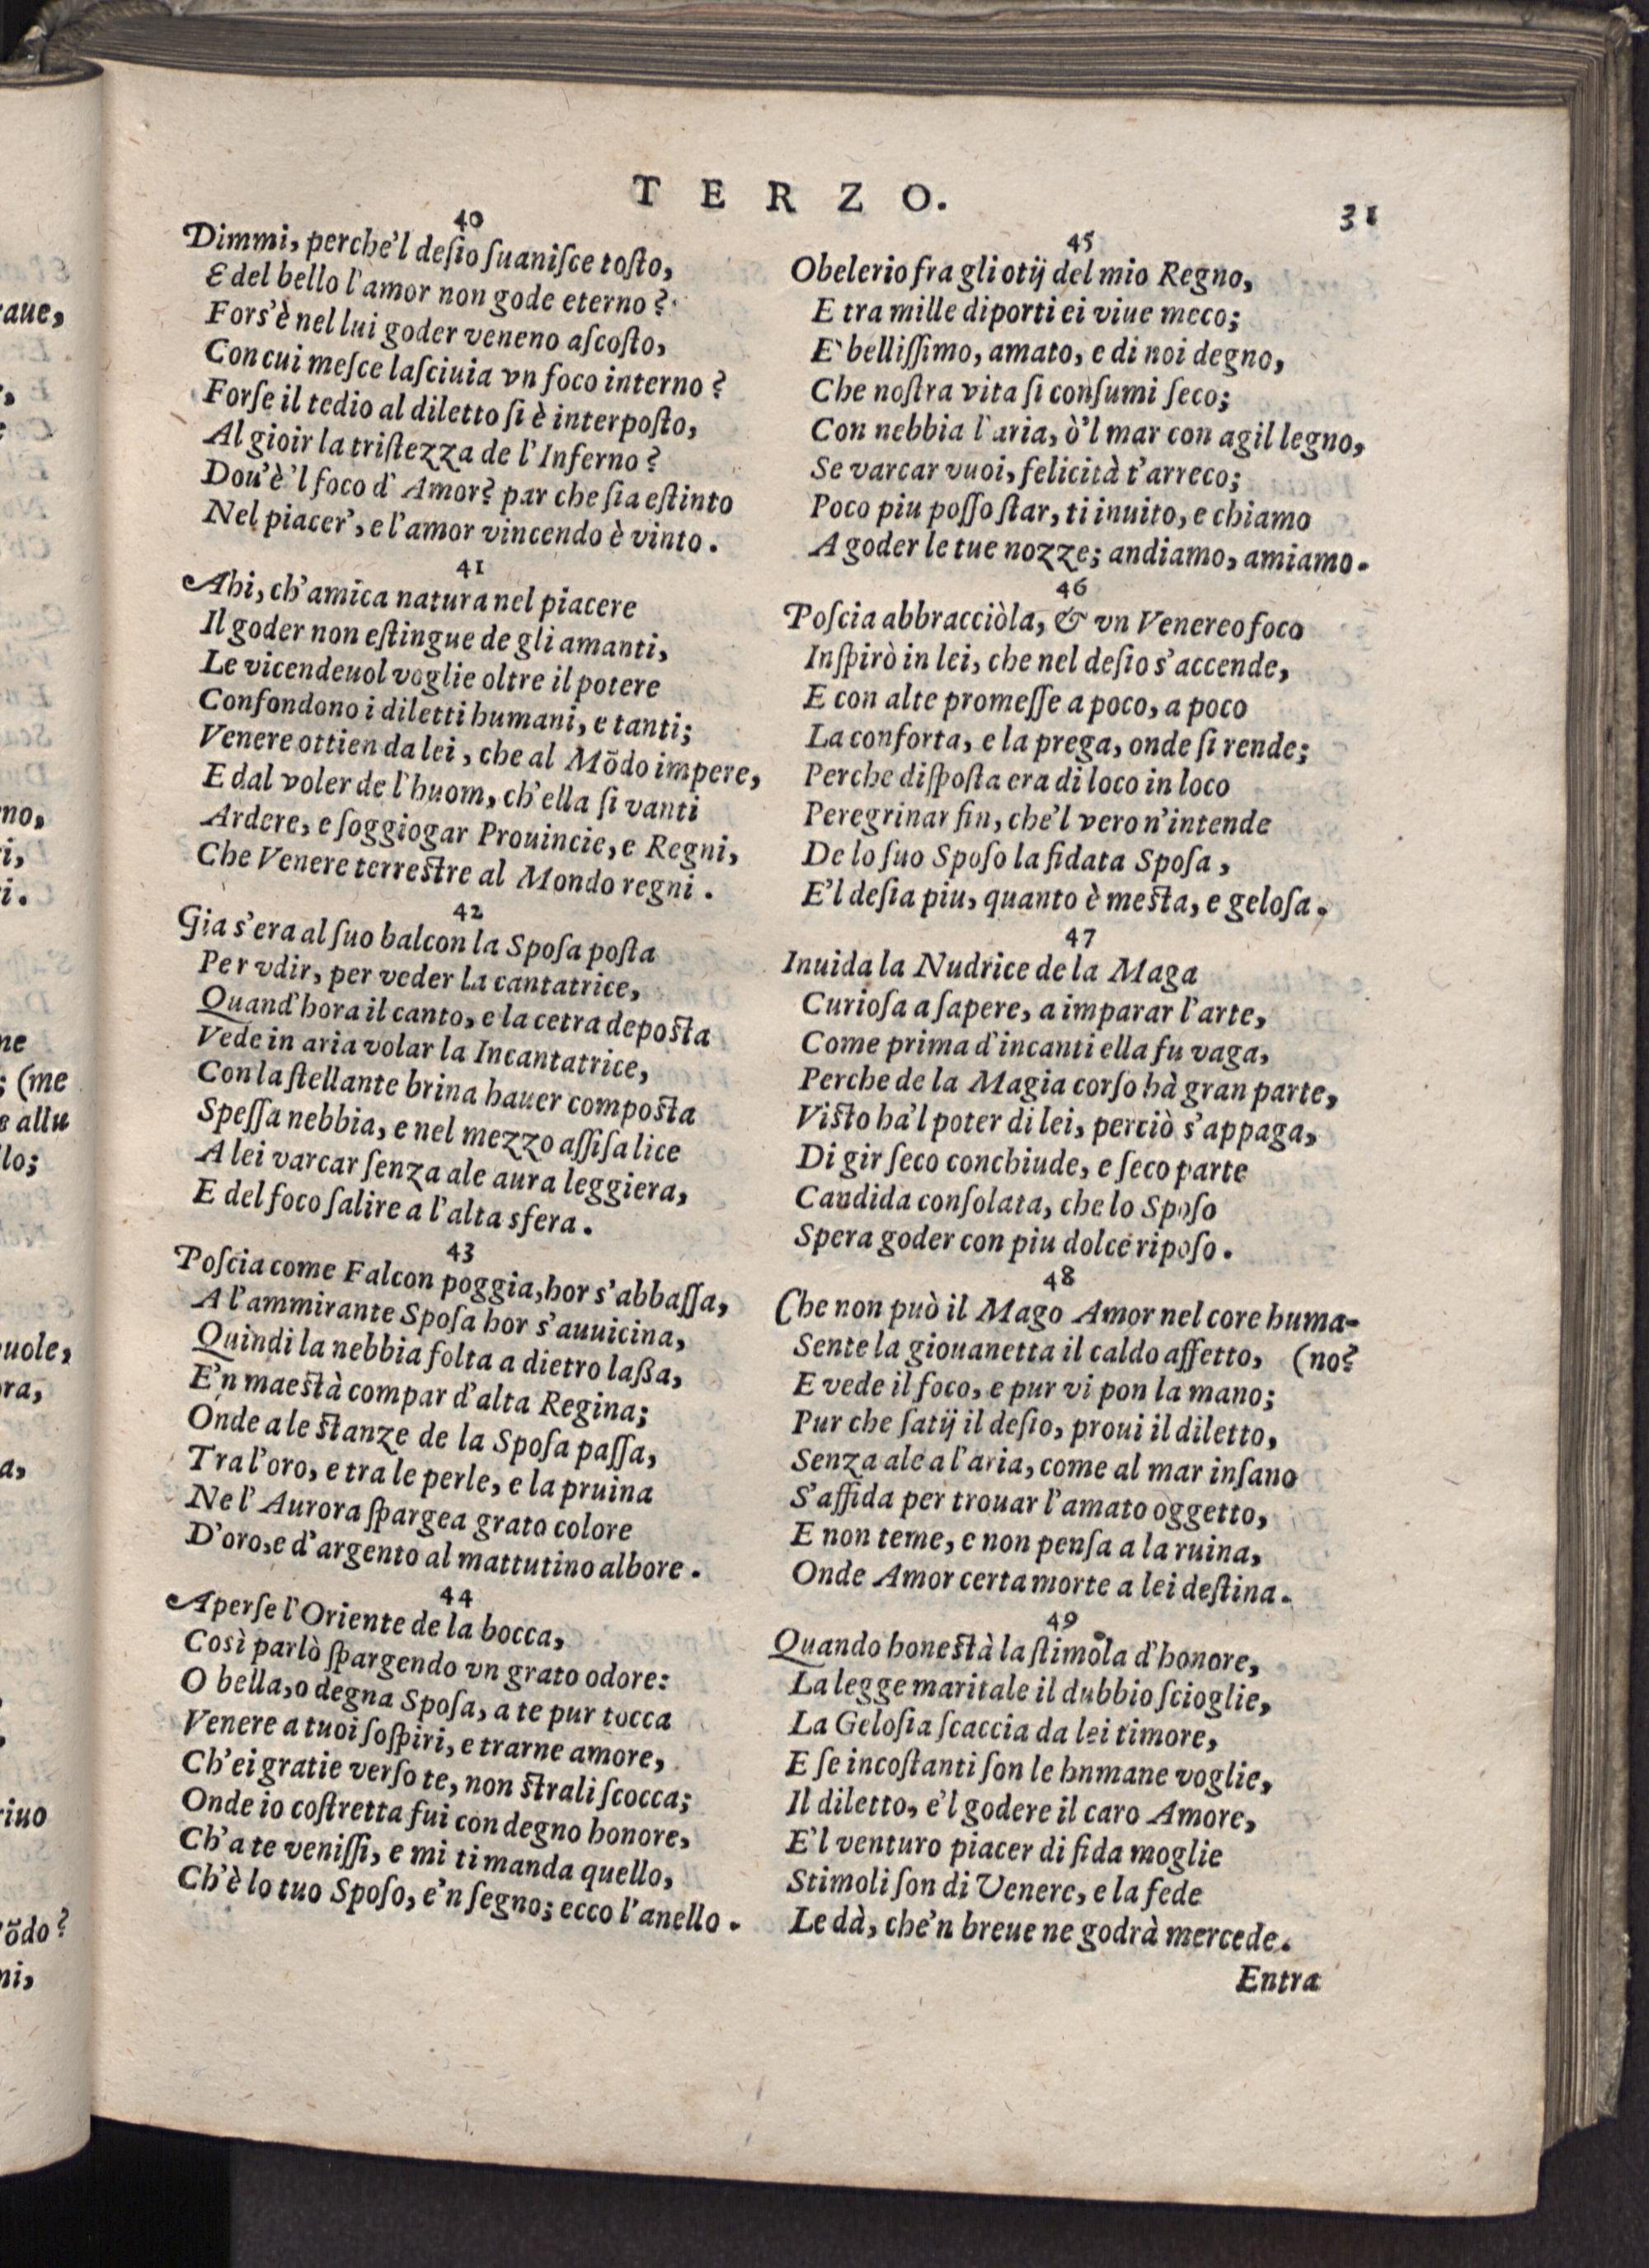 TERZO.
31
40
Dimmi, perche'l deſio ſuaniſce toſto,
E del bello l'amor non gode eterno?
Fors'è nel lui goder veneno aſcoſto,
Con cui meſce laſciuia vn foco interno?
Forſe il tedio al diletto ſi è interpoſto,
Al gioir la triſtezza de l'Inferno?
Dou'è'l foco d'Amor? par che ſia eſtinto
Nel piacer', e l'amor vincendo è vinto.
41
Ahi, ch'amica natura nel piacere
Il goder non eſtingue de gli amanti,
Le vicendeuol voglie oltre il potere
Confondono i diletti humani, e tanti;
Venere ottien da lei, che al Mõdo impere,
E dal voler de l'huom, ch'ella ſi vanti
Ardere, e ſoggiogar Prouincie, e Regni,
Che Venere terreſtre al Mondo regni.
42
Gia s'era al ſuo balcon la Spoſa poſta
Per vdir, per veder la cantatrice,
Quand'hora il canto, e la cetra depoſta
Vede in aria volar la Incantatrice,
Con la ſtellante brina hauer compoſta
Speſſa nebbia, e nel mezzo aſſiſa lice
A lei varcar ſenza ale aura leggiera,
E del foco ſalire a l'alta sfera.
43
Poſcia come Falcon poggia, hor s'abbaſſa,
A l'ammirante Spoſa hor s'auuicina,
Quindi la nebbia folta a dietro laßa,
E'n maeſtà compar d'alta Regina;
Onde a le ſtanze de la Spoſa paſſa,
Tra l'oro, e tra le perle, e la pruina
Ne l'Aurora ſpargea grato colore
D'oro, e d'argento al mattutino albore.
44
Aperſe l'Oriente de la bocca,
Così parlò ſpargendo vn grato odore:
O bella, o degna Spoſa, a te pur tocca
Venere a tuoi ſoſpiri, e trarne amore,
Ch'ei gratie verſo te, non ſtrali ſcocca;
Onde io coſtretta fui con degno honore,
Ch'a te veniſſi, e mi ti manda quello,
Ch'è lo tuo Spoſo, e'n ſegno; ecco l'anello.
45
Obelerio fra gli otij del mio Regno,
E tra mille diporti ei viue meco;
E' belliſſimo, amato, e di noi degno,
Che noſtra vita ſi conſumi ſeco;
Con nebbia l'aria, ò'l mar con agil legno,
Se varcar vuoi, felicità t'arreco;
Poco piu poſſo ſtar, ti inuito, e chiamo
A goder le tue nozze; andiamo, amiamo.
46
Poſcia abbracciòla, & vn Venereo foco
Inſpirò in lei, che nel deſio s'accende,
E con alte promeſſe a poco, a poco
La conforta, e la prega, onde ſi rende;
Perche diſpoſta era di loco in loco
Peregrinar fin, che'l vero n'intende
De lo ſuo Spoſo la fidata Spoſa,
E'l deſia piu, quanto è meſta, e geloſa.
47
Inuida la Nudrice de la Maga
Curioſa a ſapere, a imparar l'arte,
Come prima d'incanti ella fu vaga,
Perche de la Magia corſo hà gran parte,
Viſto ha'l poter di lei, perciò s'appaga,
Di gir ſeco conchiude, e ſeco parte
Candida conſolata, che lo Spoſo
Spera goder con piu dolce ripoſo.
48
Che non può il Mago Amor nel core huma-
Sente la giouanetta il caldo affetto, (no?
E vede il foco, e pur vi pon la mano;
Pur che ſatij il deſio, proui il diletto,
Senza ale a l'aria, come al mar inſano
S'affida per trouar l'amato oggetto,
E non teme, e non penſa a la ruina,
Onde Amor certa morte a lei deſtina.
49
Quando honeſtà la ſtimola d'honore,
La legge maritale il dubbio ſcioglie,
La Geloſia ſcaccia da lei timore,
E ſe incoſtanti ſon le hnmane voglie,
Il diletto, e'l godere il caro Amore,
E'l venturo piacer di fida moglie
Stimoli ſon di Venere, e la fede
Le dà, che'n breue ne godrà mercede.
Entra